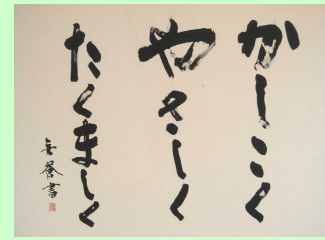 かしこく
やさしく
たくましく
書